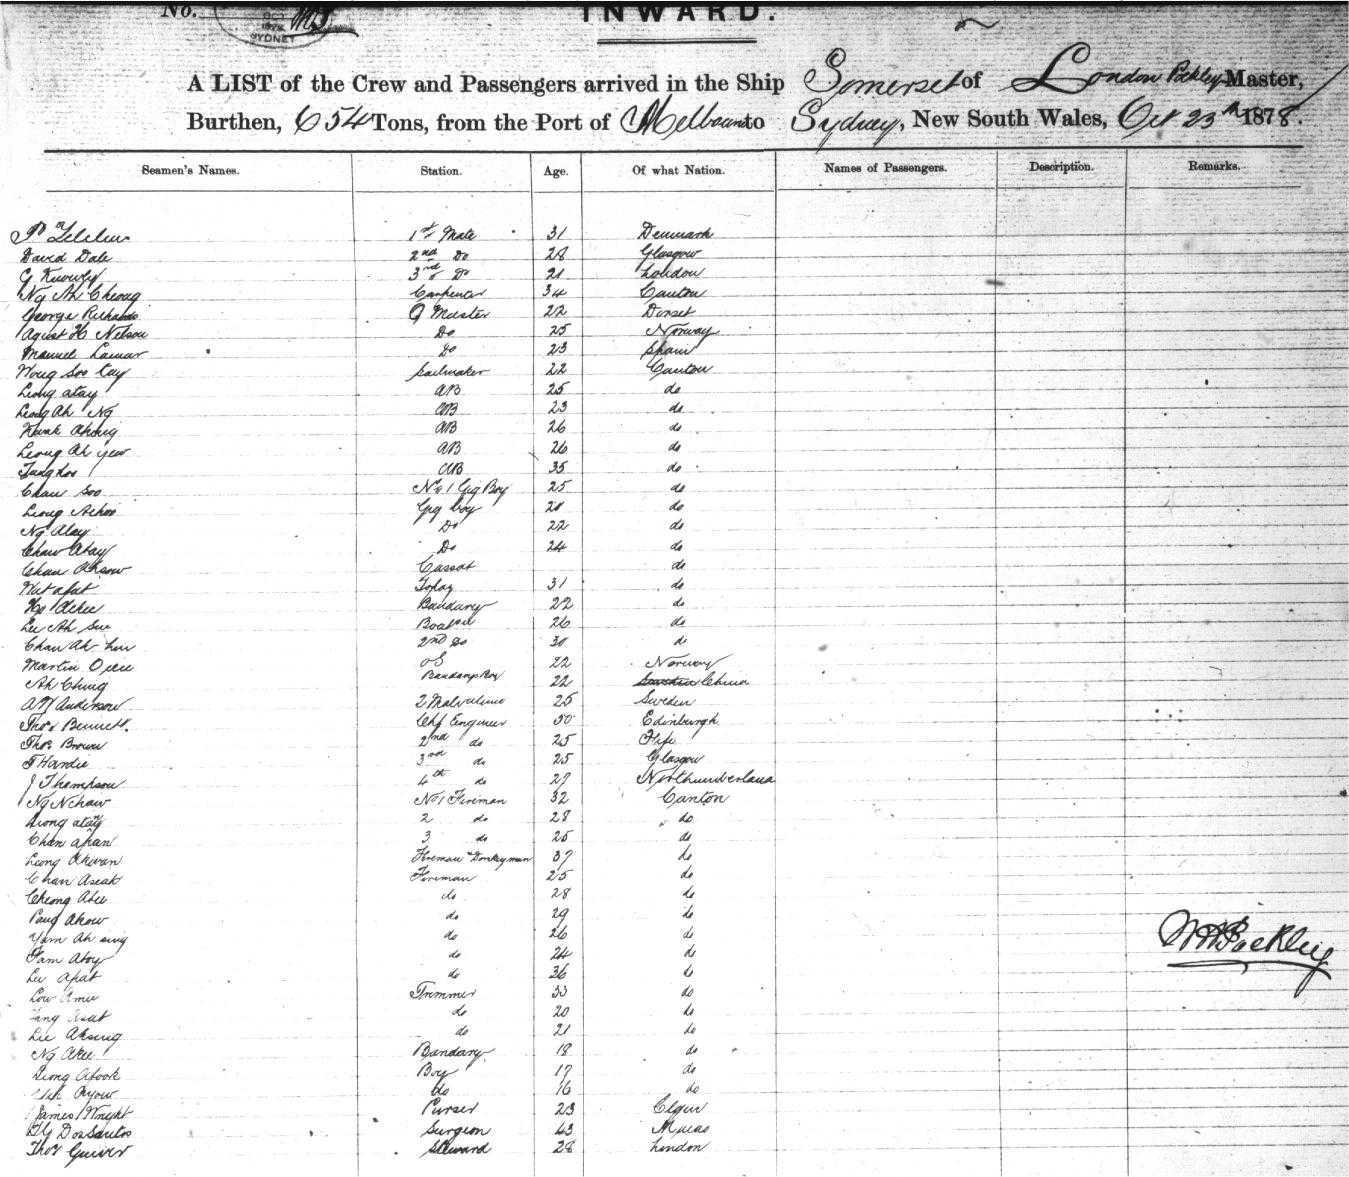 No.
SYDNEY
INWARD.
A LIST of the Crew and Passengers arrived in the Ship Somerset of London Pockley Master,
Burthen, 654 Tons, from the Port of Melbourne to Sydney, New South Wales, Oct 23rd 1878.
Seamen's Names. Station. Age. Of what Nation. Names of Passengers. Description. Remarks.
1st Mate 31 Denmark
David Dale 2nd Do 28 Glasgow
3rd Do 21 London
Ng Ah Cheong Carpenter 34 Canton
George Richards Q Master 22 Dorset
Agust H Nelson Do 25 Norway
Manuel Lamar Do 23 Spain
Wong Soo Kay Sailmaker 22 Canton
Leong atay AB 25 do
Leong Ah Ng AB 23 do
Kwok Ahong AB 26 do
Leong Ah yew AB 26 do
AB 35 do
Chan Soo No 1 Gig Boy 25 do
Leong Ahoi Gig boy do
Ng Alay Do 22 do
Chaw Atay Do 24 do
Chan Ahsow Cassat do
Topaz 31 do
Bandary 22 do
Lee Ah Sue 26 do
Chan Ah Lun 2nd Do 30 do
Martin OS 22 Norway
Ah Ching Bandary Boy 22 Sweden China
A W Anderson 2 25 Sweden
Thos Bennett. Chf Engineer 50 Edinburgh
Thos Brown 2nd do 25 Fife
T Hardie 3rd do 25 Glasgow
J Thompson 4th do 27 Northumberland
Ng N chaw No 1 Fireman 32 Canton
Leong atay 2 do 28 do
Chan apan 3 do 25 do
Leong Akwan Fireman & Donkeyman 37 do
Chan Aseak Fireman 25 do
Cheong Atee do 28 do
Pang Akow do 29 do
Yam Ah sing do 26 do
Fam Atoy do 24 do
Lee Apat do 36 do
Low Amu Trimmer 33 do
Asat do 20 do
Lee Aksing do 21 do
Ng Akee Bandary 18 do
Leong Afook Boy 17 do
Ayow do 16 do
James Wright Purser 23 Elgin
Dos Santos Surgeon 43 Macao
Thos Guiver Steward 28 London
W Pockley